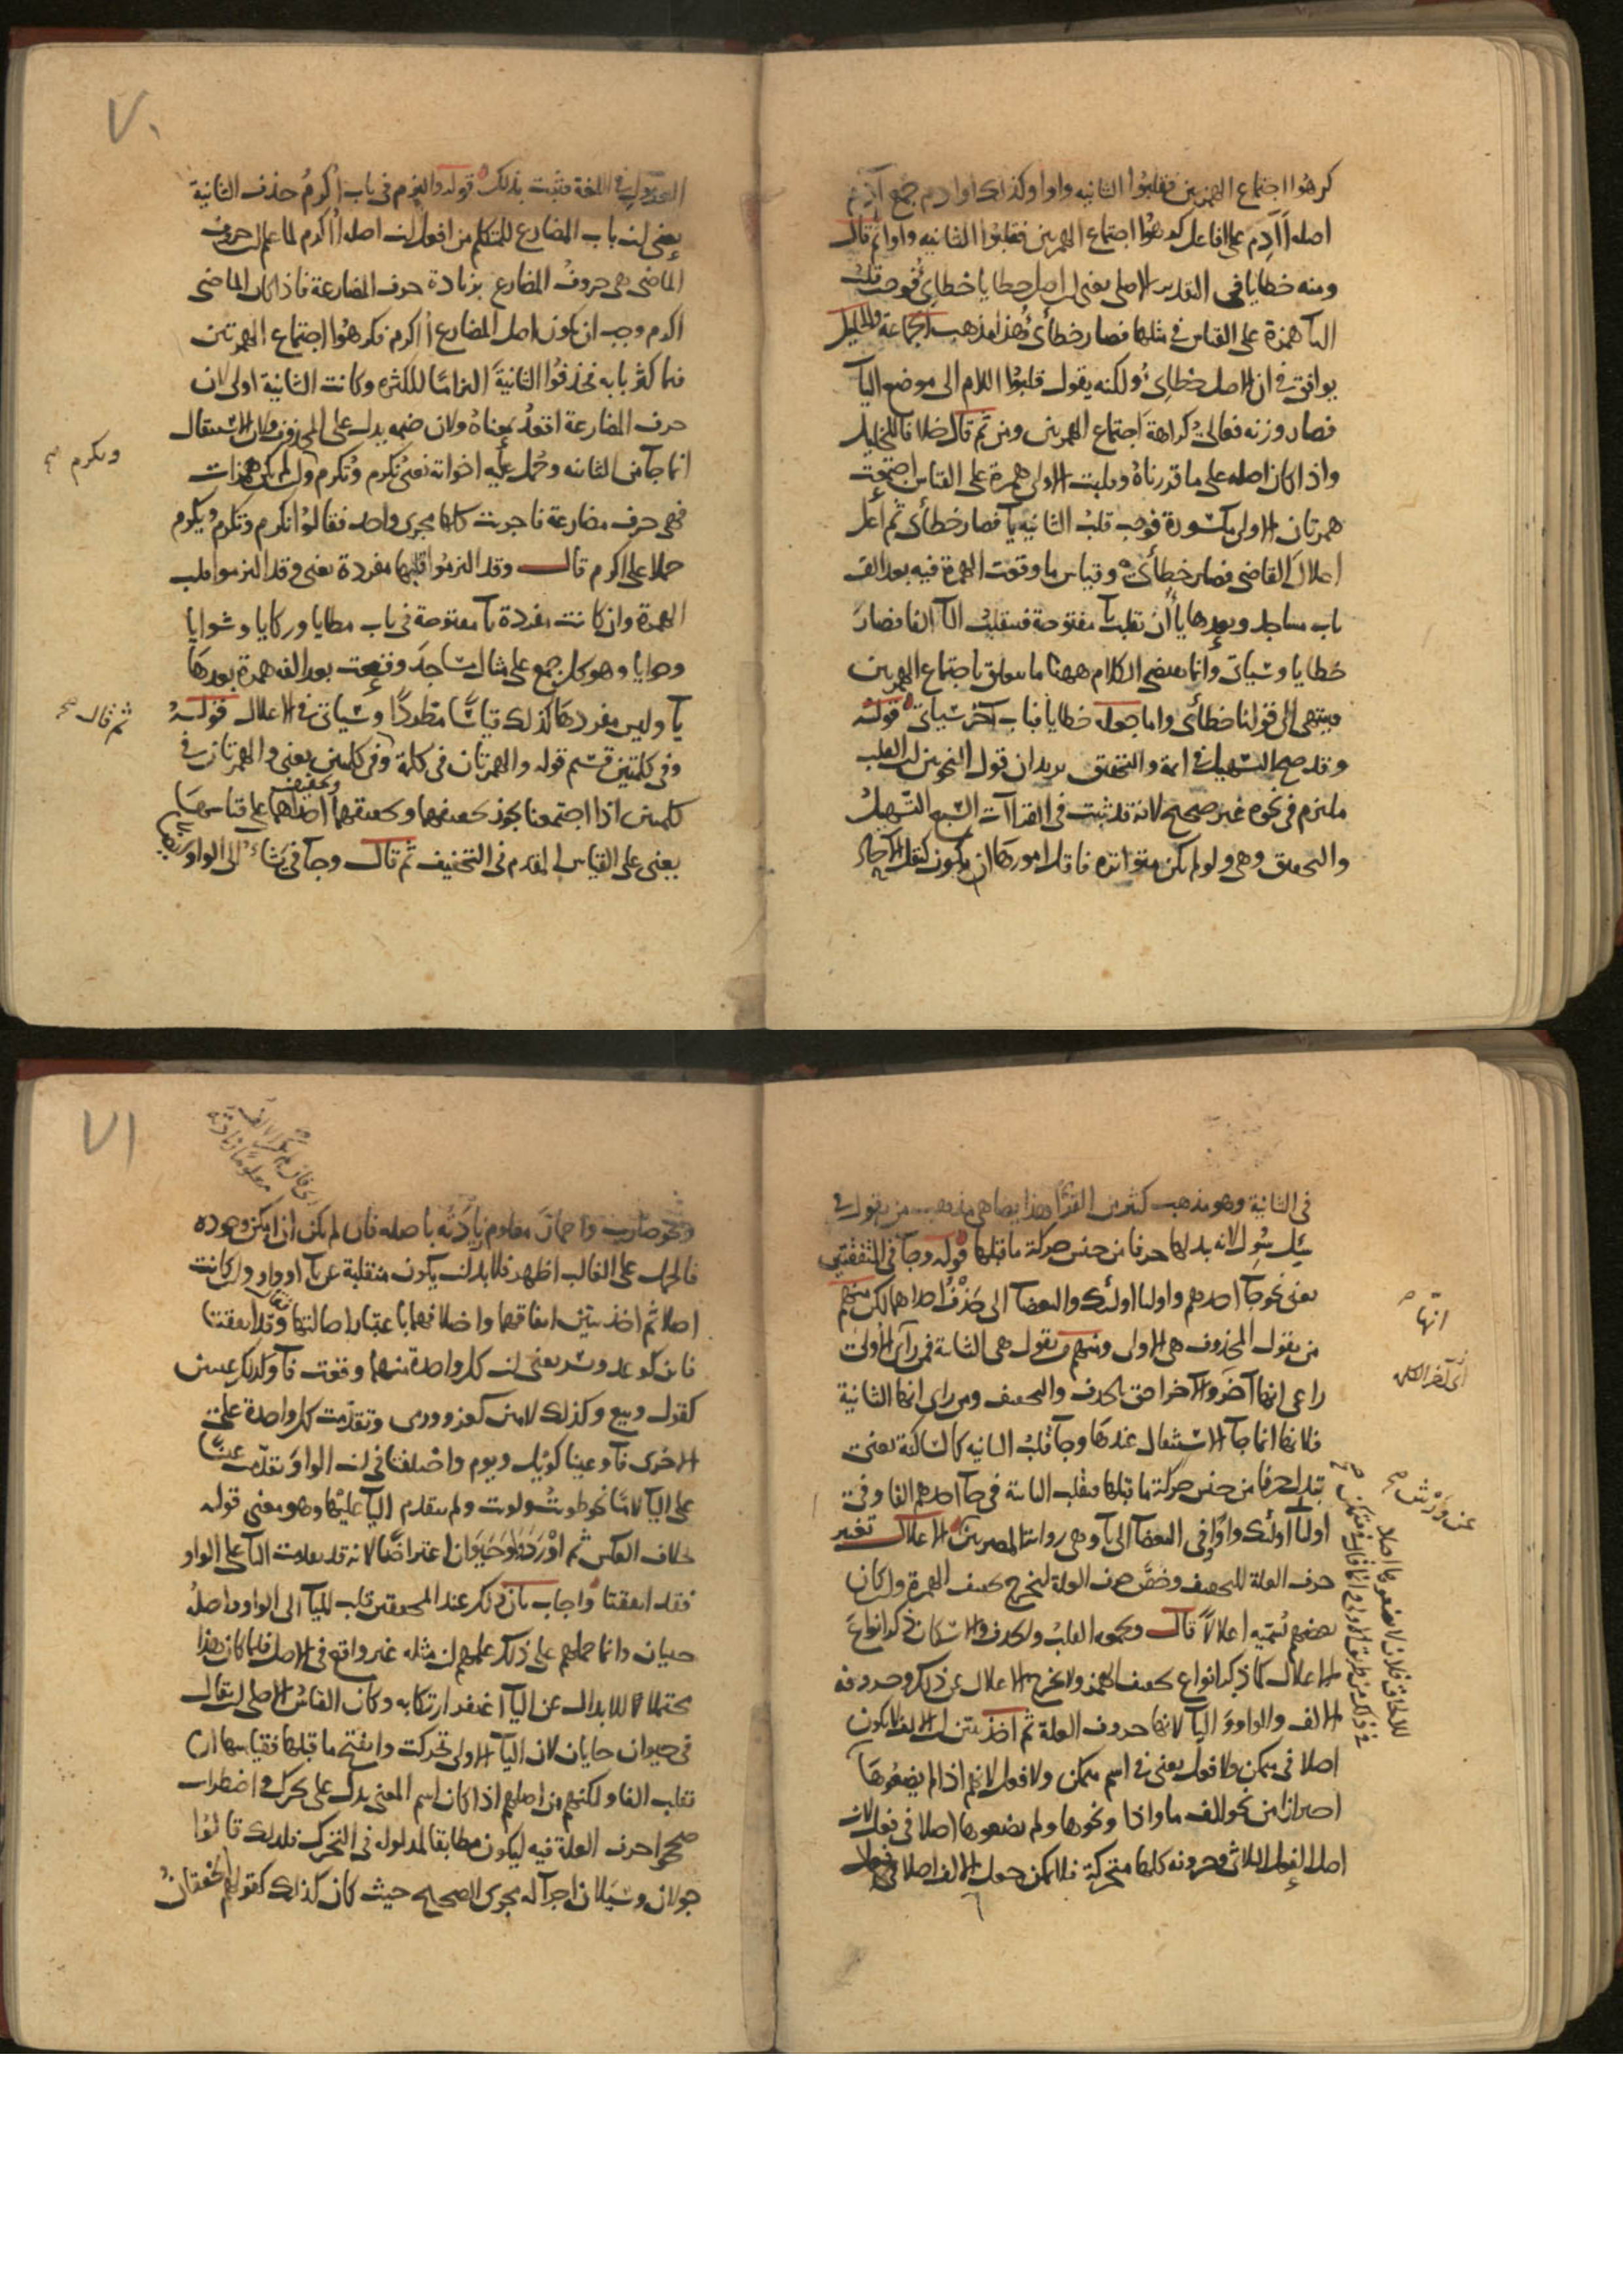 كرهوا اجتماع الهمزتين فقلبوا الثانيه واوا وكذلك اوادم جمع آدم
اصله أآدم على افاعل كرهوا اجتماع الهمزتين فقلبوا الثانيه واوا ثم قال
ومنه خطايا في التقديرين الاصلي يعني ان اصل خطايا خطايئ فوجب قلب
اليآ همزة على القياس في مثلها فصار خطأئ هذا مذهب الجماعة والخليل
يوافق في ان الاصل خطايئ ولكنه يقول قلبوا اللام الى موضع اليآ
فصار وزنه فعالئ كراهة اجتماع الهمزتين ومن ثم قال خلافا للخليل
واذا كان اصله على ما قدرناه وقلبت الاولى همزة على القياس اجتمعت
همزتان الاولى مكسورة فوجب قلب الثانيه يآ فصار خطأئ ثم أعل
اعلال القاضي فصار خطأئ وقياس ما وقعت الهمزة فيه بعد الف
باب مساجد وبعدها يا أن تقلب يآ مفتوحة فتقلب اليآ الفا فصار
خطايا وسياتي وانما يقتضي الكلام ههنا ما يتعلق باجتماع الهمزتين
فينتهي الى قولنا خطأئ واما جعله خطايا فباب آخر سياتي قوله
وقد صح التسهيل في ائمة والتحقيق يريد ان قول النحويين ان القلب
ملتزم في نحوه غير صحيح لانه قد ثبت في القراآت السبع التسهيل
والتحقيق وهي ولو لم تكن متواترة فاقل امورها ان يكون كنقل الآحاد
٧٠
العدول في اللغة فثبت بذلك قوله والتزم في باب أكرم حذف الثانية
يعني ان باب المضارع للمتكلم من افعل ان اصله أأكرم لما علم ان حروف
الماضي هي حروف المضارع بزيادة حرف المضارعة فاذا كان الماضي
اكرم وجب ان يكون اصل المضارع أأكرم فكرهوا اجتماع الهمزتين
فيما كثر بابه فحذفوا الثانية التزاما للكثره وكانت الثانية اولى لان
حرف المضارعة اقعد بمعناه ولان ضمه يدل على المحذوف ولان الاستثقال
انما جآ من الثانيه وحمل عليه اخواته نعني نكرم وتكرم وان لم يكن همزات
ويكرم صح
فهي حرف مضارعة فاجريت كلها مجرى واحد فقالوا نكرم وتكرم ويكرم
حملا على اكرم قال وقد التزموا قلبها مفردة يعني وقد التزموا قلب
الهمزة وان كانت مفردة يآ مفتوحة في باب مطايا وركايا وشوايا
وحوايا وهو كل جمع على مثال مساجد وقعت بعد الفه همزة بعدها
يآ وليس مفردها كذلك قياسا مطردا وسياتي في الاعلال قوله
ثم قال صح
وفي كلمتين قسيم قوله والهمزتان في كلمة وفي كلمتين يعني والهمزتان في
كلمتين اذا اجتمعتا يجوز تحقيقهما وتخفيفهما وتخفيف احداهما على قياسها
يعني على القياس المتقدم في التخفيف ثم قال وجآ في يشاء الى الواو ايضا
في الثانية وهو مذهب كثير من القرآ وهذا يضاهي مذهب من يقول في
سئل سول لانه بدلها حرفا من جنس حركة ما قبلها قوله وجآ في المتفقتين
يعني نحو جآ احدهم واوليا اولئك والبغضآ الى حذف احداهما لكن منهم
من يقول المحذوف هي الاولى ومنهم من يقول هي الثانية فمن رأى الاولى
راعى انها آخر والآخر احق بالحذف والتخفيف ومن راى انها الثانية
انها صح
أي آخر الكلمه
فلانها انما جآ الاستثقال عندها وجآ قلب الثانيه كالساكنة يعني
تبدل حرفا من جنس حركة ما قبلها فتقلب الثانية في جآ احدهم الفا وفي
عن ورش صح
اوليا اولئك واوا وفي البغضآ الى يآ وهي رواية المصريين الاعلال تغيير
حرف العلة للتخفيف وخص حرف العلة ليخرج تخفيف الهمزة وان كان
بعضهم يسميه اعلالا قال ويجمعه القلب والحذف والاسكان ذكر انواع
الاعلال كما ذكر انواع تخفيف الهمز ولا يخرج الاعلال عن ذلك وحروفه
الالف والواو واليآ لانها حروف العلة ثم اخذ يبين ان الالف لا يكون
اصلا في متمكن ولا فعل يعني في اسم متمكن ولا فعل لانهم اذا لم يضعوها
احترازا من نحو الف ما واذا ونحوها ولم يضعوها اصلا في فعل لان
اصل الفعل الثلاثي وحروفه كلها متحركة فلا يمكن جعل الالف اصلا في فعل
٧١
ونحو ضارب واحمار معلوم زيادته باصله فان لم يكن اذا يمكن وجوده
فالحمل على الغالب اظهر فلا بد ان يكون منقلبة عن يآ او واو وان كانت
اصلا ثم اخذ يبين اتفاقهما واختلافهما باعتبار اصالتها فقال وقد اتفقتا
فاين كوعد ويسر يعني ان كل واحدة منهما وقعت فآ وكذلك عينين
كقول وبيع وكذلك لامين كغزو ورمي وتقدمت كل واحدة على
الاخرى فآ وعينا كويل ويوم واختلفتا في ان الواو تقدمت عينا
على اليآ لاما نحو طويت ولويت ولم يتقدم اليآ عليها وهو معنى قوله
بخلاف العكس ثم أورد واو حيوان اعتراضا لانه قد تقدمت اليآ على الواو
فقد اتفقتا واجاب بان ذلك عند المحققين قلب لليآ الى الواو واصله
حييان وانما حملهم على ذلك علمهم ان مثله غير واقع في الاصل فلما كان هذا
محتملا للابدال عن اليآ اغتفر ارتكابه وكان القياس الاصلي ان يقال
في حيوان حايان لان اليآ الاولى تحركت وانفتح ما قبلها فقياسها ان
تقلب الفا ولكنهم من اصلهم اذا كان اسم المعنى يدل على تحرك واضطراب
صححوا حرف العلة فيه ليكون مطابقا لمدلوله في التحرك فلذلك قالوا
جولان وسيلان اجرآ له مجرى الصحيح حيث كان كذلك كقولهم خفقان